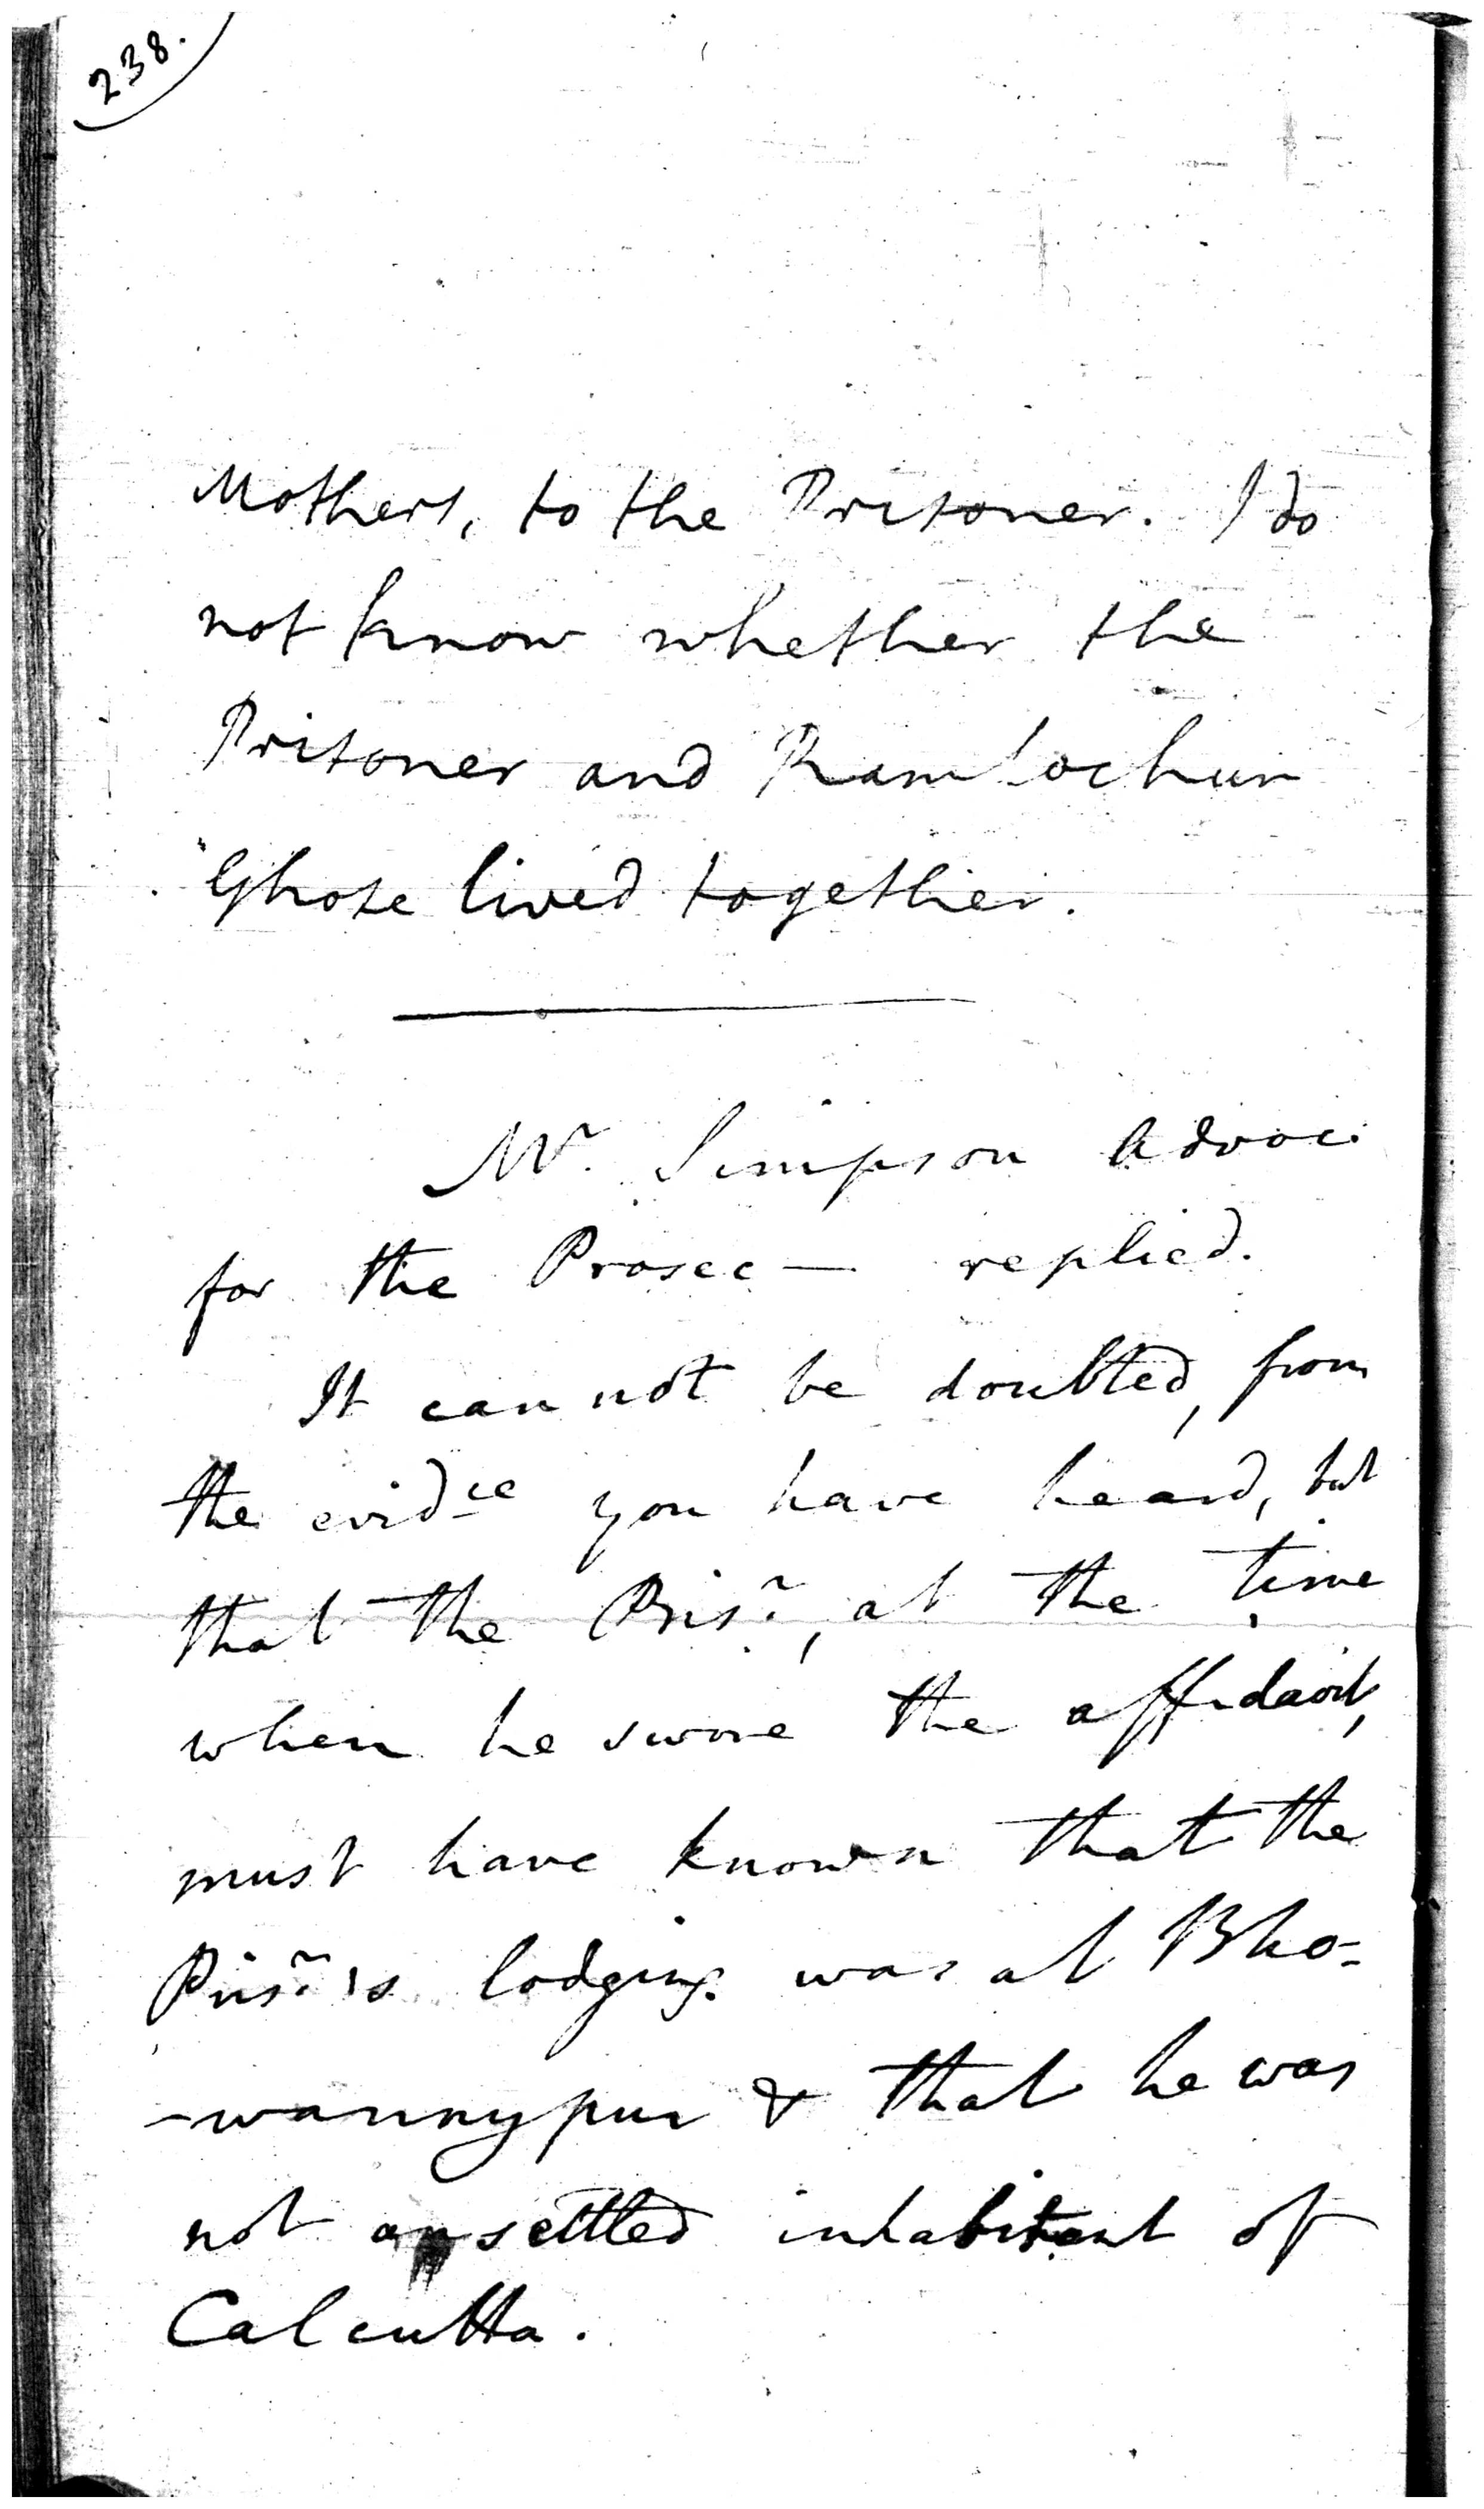 238.
Mothers, to the Prisoner. I do
not know whether the
Prisoner and Ramlochun
Ghose lived together.
Mr. Simpson Advoc:
for the Prosec— replied.
It can not be doubted, from
the evidce you have heard, but
that the Prisr, at the time
when he swore the affidavit,
must have known that the
Prisr's lodging was at Bho-
-wannypur & that he was
not a settled inhabitant of
Calcutta.